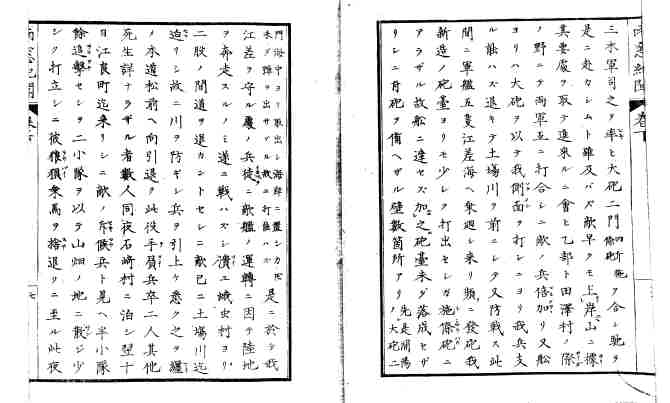 南窓紀聞 巻下
三木軍司之ヲ率ヒ大砲二門四斤施條砲ヲ合シ馳テ
是ニ赴カシムト雖及バズ敵早クモ土岸山ニ據
其要處ヲ取テ進來ルニ會ヒ乙部ト田澤村ノ際
ノ野ニテ両軍互ニ打合シニ敵ノ兵倍加リ又舩
ヨリハ大砲ヲ以テ我側面ヲ打シニヨリ我兵支
ル能ハズ退キテ土場川ヲ前ニシテ又防戦ス此
間ニ軍艦五隻江差海ヘ乗廻シ来リ頻ニ發砲我
新造ノ砲臺ヨリモ少シク打出セシガ施條砲ニ
アラザル故舩ニ達セズ加之砲臺未ダ落成セザ
リシニ有砲ヲ備ヘザル壁数箇所アリ先是開陽ノ大砲ニ
門海中ヨリ取出シ海岸ニ置シカ𪜈
未ダ弾ヲ出サザル故ニ打能ハズ是ニ於テ我
江差ヲ守ル處ノ兵徒ニ敵艦ノ運轉ニ因テ陸地
ヲ奔走スルノミ遂ニ戰ハズシテ潰エ蛾虫村ヨリ
二股ノ間道ヲ退カントセシニ敵已ニ土場川迄
迫リシ故ニ川ヲ防ギシ兵ヲ引上ケ悉ク之ヲ纏
ノ本道松前ヘ向引退ク此役手負兵卒二人其他
死生詳ナラザル者數人同夜石崎村ニ泊シ翌十
日江良町迄来リシニ敵ノ斥候兵ト見ヘ半小隊
餘追撃セシヲ二小隊ヲ以テ山畑ノ地ニ散ジ少
シク打立シニ彼狼狽乗馬ヲ捨退リニ至ル此夜
南窓紀聞 巻下 七